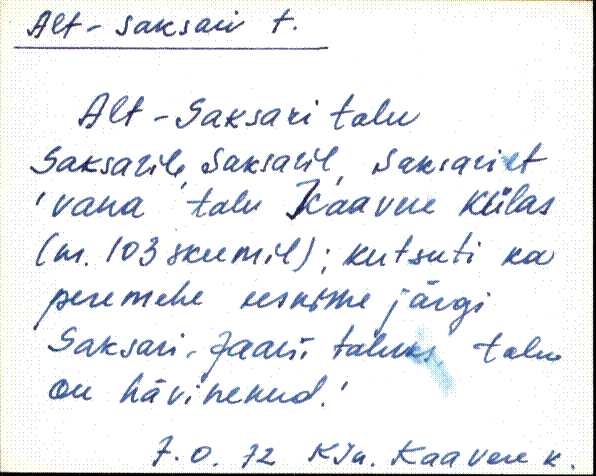 Alt-Saksari t.
Alt-Saksari talu
Saksarile, Saksaril, Saksarilt
'vana talu Kaavere külas
(nr. 103 skeemil); kutsuti ka
peremehe eesnime järgi
Saksari-Jaani taluks. talu
on hävinenud.'
7.0.72 KJn. Kaavere k.